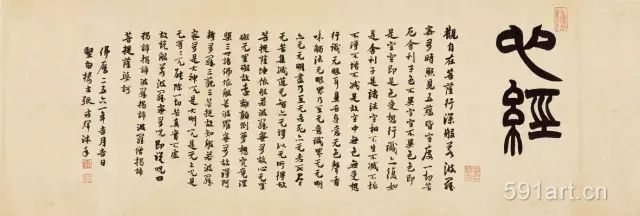 心經
觀自在菩薩行深般若波羅
蜜多時照見五蘊皆空度一切苦
厄舍利子色不異空空不異色色即
是空空即是色受想行識亦復如
是舍利子是諸法空相不生不滅不垢
不淨不增不減是故空中無色無受想
行識无眼耳鼻舌身意无色聲香
味觸法无眼界乃至无意識界无无明
亦无无明盡乃至无老死亦无老死盡
无苦集滅道无智亦无得以无所得故
菩提薩埵依般若波羅蜜多故心无罣
礙无罣礙故顛倒夢想究竟涅
槃三世諸佛依般若波羅蜜多故得阿
耨多羅三藐三菩提故知般若波羅
蜜多是大神咒是大明咒是无上咒是
无等等咒能除一切苦真實不虛
故說般若波羅蜜多咒即說咒曰
揭諦揭諦波羅揭諦波羅僧揭諦
菩提薩婆訶
佛曆二五六一年吉月吉日
堅白樓主張沐手
591art.cn